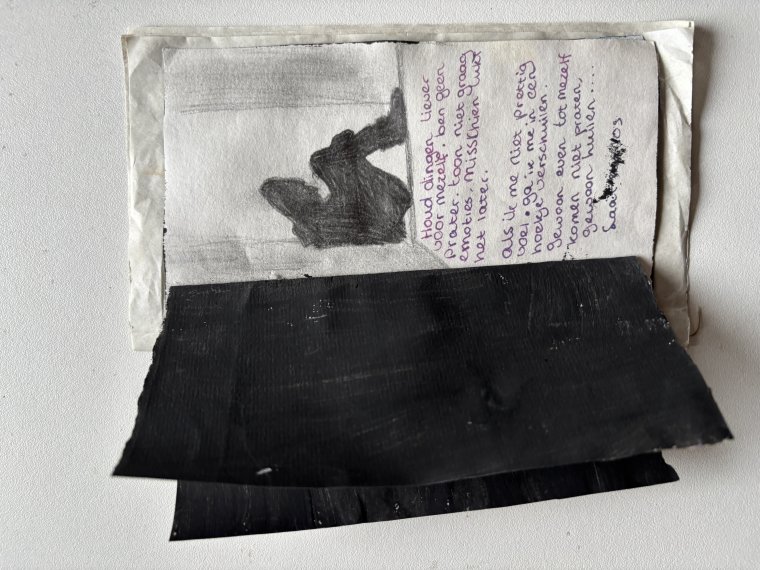 Houd dingen liever
voor mezelf, ben geen
prater. toon niet graag
emoties, misschien lukt
het later.
als ik me niet prettig
voel, ga ik me in een
hoekje verschuilen.
gewoon even tot mezelf
komen niet praten,
gewoon huilen....